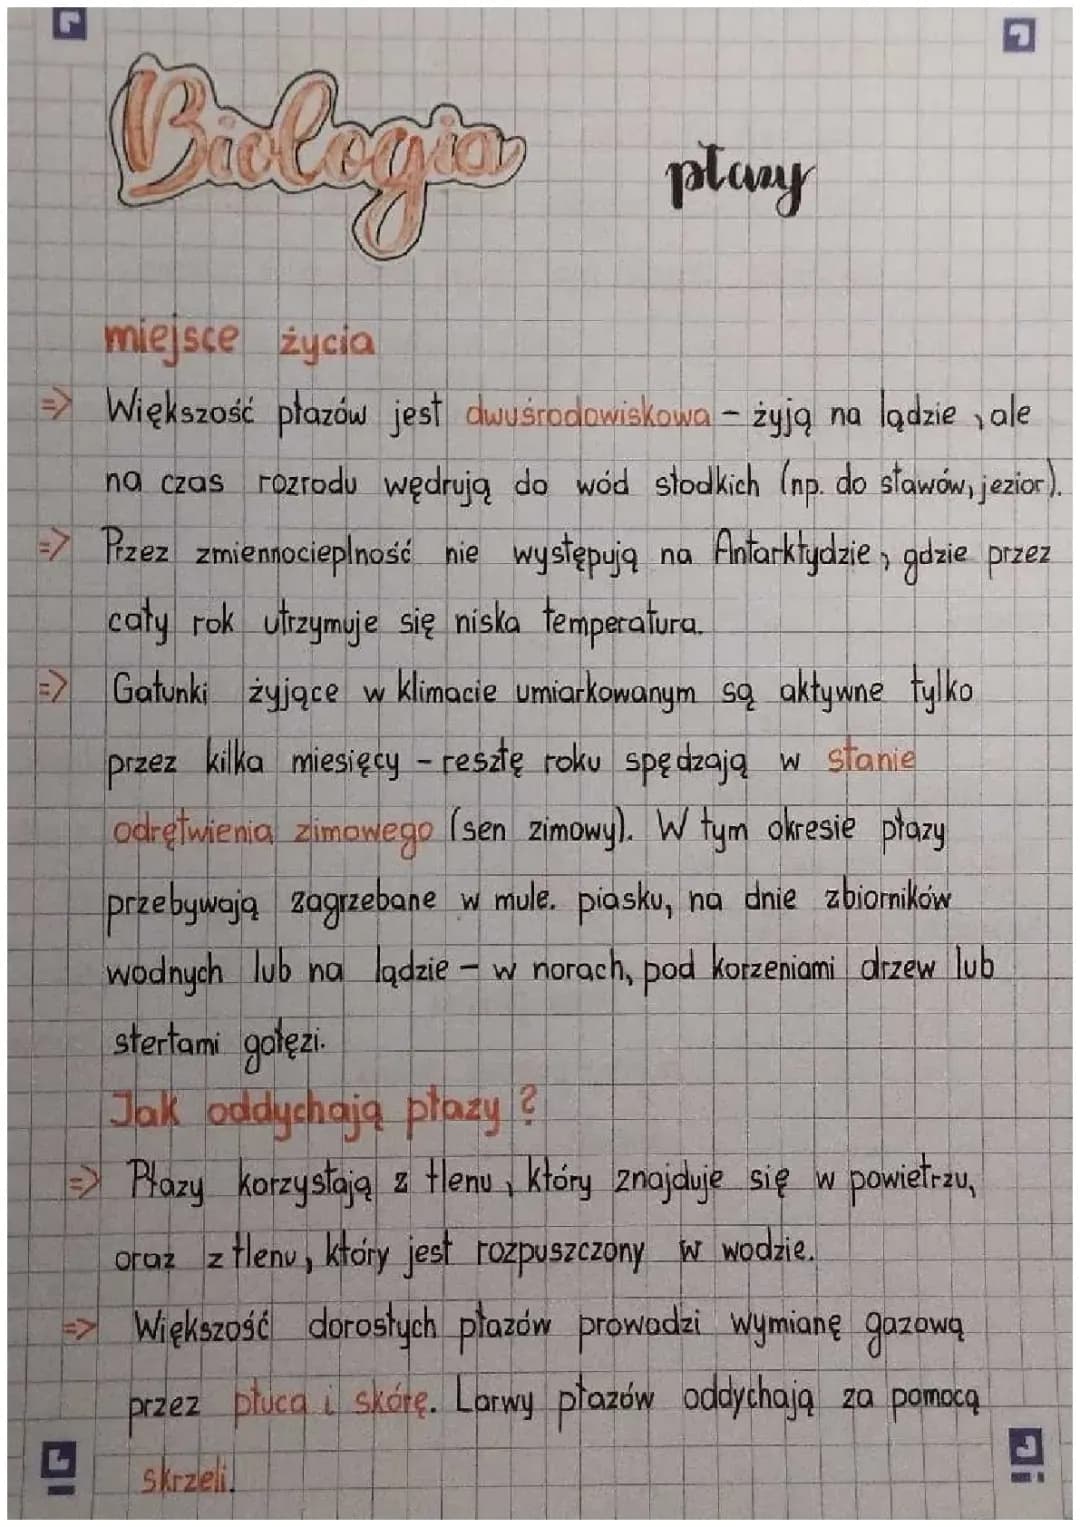 Biologia
płazy
miejsce życia
=> Większość płazów jest dwuśrodowiskowa - żyją na lądzie, ale
na czas rozrodu wędrują do wód słodkich (np. do stawów, jezior).
=> Przez zmiennocieplność nie występują na Antarktydzie, gdzie przez
cały rok utrzymuje się niska temperatura.
=> Gatunki żyjące w klimacie umiarkowanym są aktywne tylko
przez kilka miesięcy - resztę roku spędzają w stanie
odrętwienia zimowego (sen zimowy). W tym okresie płazy
przebywają zagrzebane w mule. piasku, na dnie zbiorników
wodnych lub na lądzie - w norach, pod korzeniami drzew lub
stertami gałęzi.
Jak oddychają płazy?
=> Płazy korzystają z tlenu, który znajduje się w powietrzu,
oraz z tlenu, który jest rozpuszczony w wodzie.
=> Większość dorosłych płazów prowadzi wymianę gazową
przez płuca i skórę. Larwy płazów oddychają za pomocą
skrzeli.